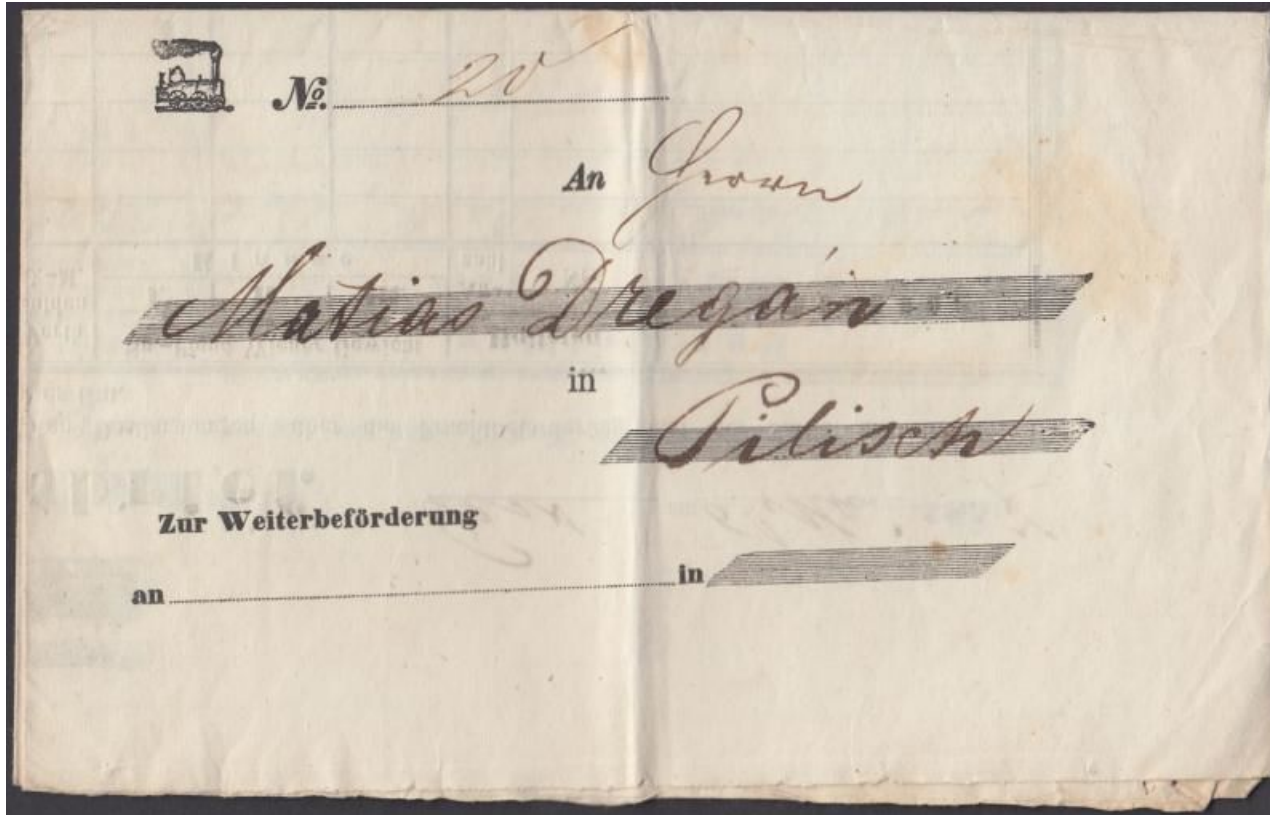 No. 20
An Herrn
Matias Dregán
in
Pilisch
Zur Weiterbeförderung
an in